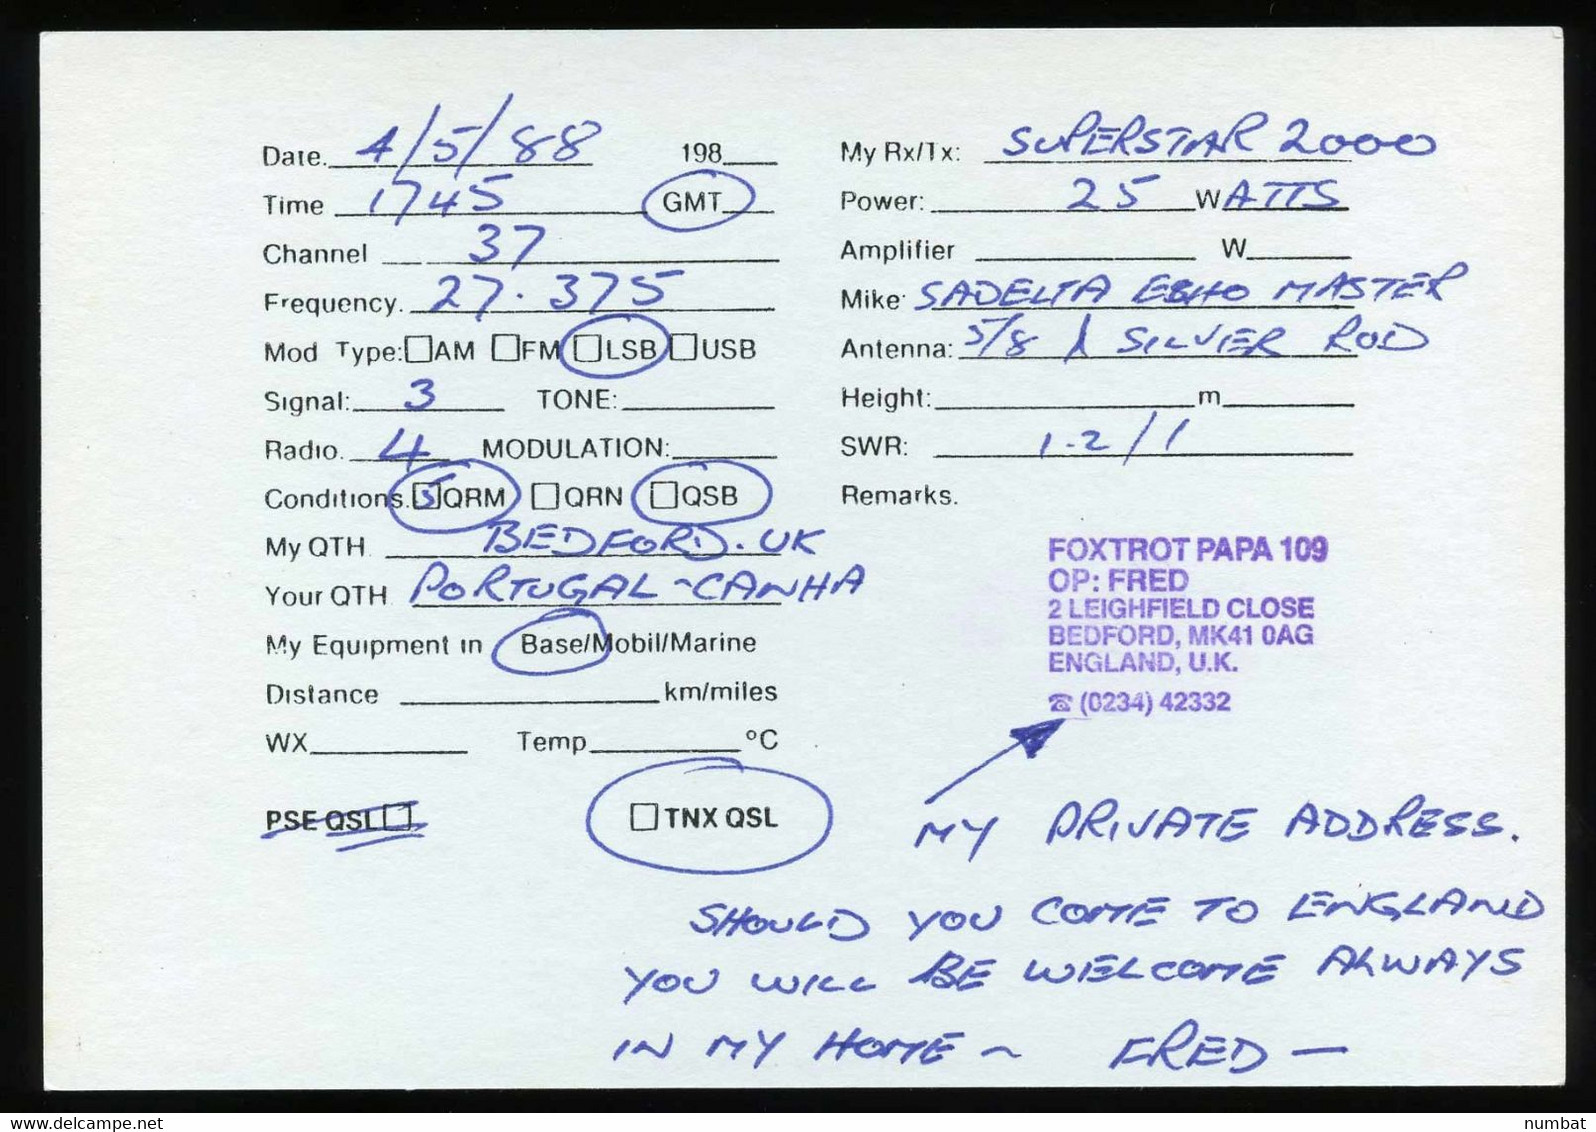 Date. 4/5/88 198
Time 1745 GMT
Channel 37
Frequency. 27.375
Mod Type: AM FM LSB USB
Signal: 3 TONE:
Radio. 4 MODULATION:
Conditions. 5 QRM QRN QSB
My QTH BEDFORD. UK
Your QTH PORTUGAL - CANHA
My Equipment in Base/Mobil/Marine
Distance km/miles
WX Temp °C
PSE QSL TNX QSL
My Rx/Tx: SUPERSTAR 2000
Power: 25 WATTS
Amplifier W
Mike SADELTA ECHO MASTER
Antenna: 5/8 λ SILVER ROD
Height: m
SWR: 1.2/1
Remarks.
FOXTROT PAPA 109
OP: FRED
2 LEIGHFIELD CLOSE
BEDFORD, MK41 0AG
ENGLAND, U.K.
☎ (0234) 42332
MY PRIVATE ADDRESS.
SHOULD YOU COME TO ENGLAND
YOU WILL BE WELCOME ALWAYS
IN MY HOME ~ FRED —
numbat